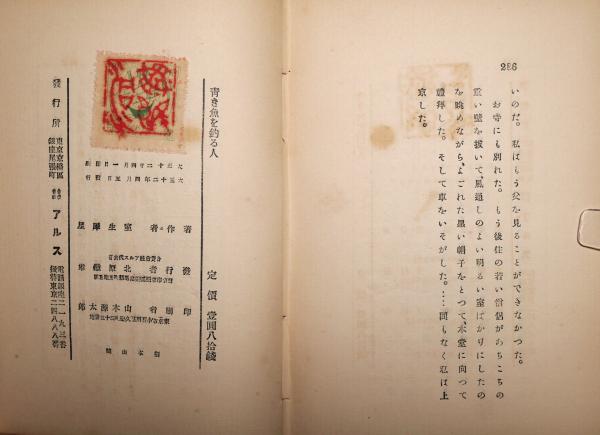 286
いのだ。私はもう父を見ることができなかつた。
お寺にも別れた。もう後住の若い僧侶があちこちの
重い壁を拔いて、風通しのよい明るい室ばかりにしたの
を眺めながら、よごれた黑い帽子をとつて、本堂に向つて
禮拜した。そして車をいそがした。……間もなく私は上
京した。
靑き魚を釣る人
定價 壹圓八拾錢
大正十二年四月一日印刷
大正十二年四月五日發行
著作者 室生犀星
發行者 北原鐵雄
印刷者 山本源太郎
製本山
發行所
東京京橋區
銀座尾張町
アルス
電話銀座二一九三番
振替東京二四八八八番